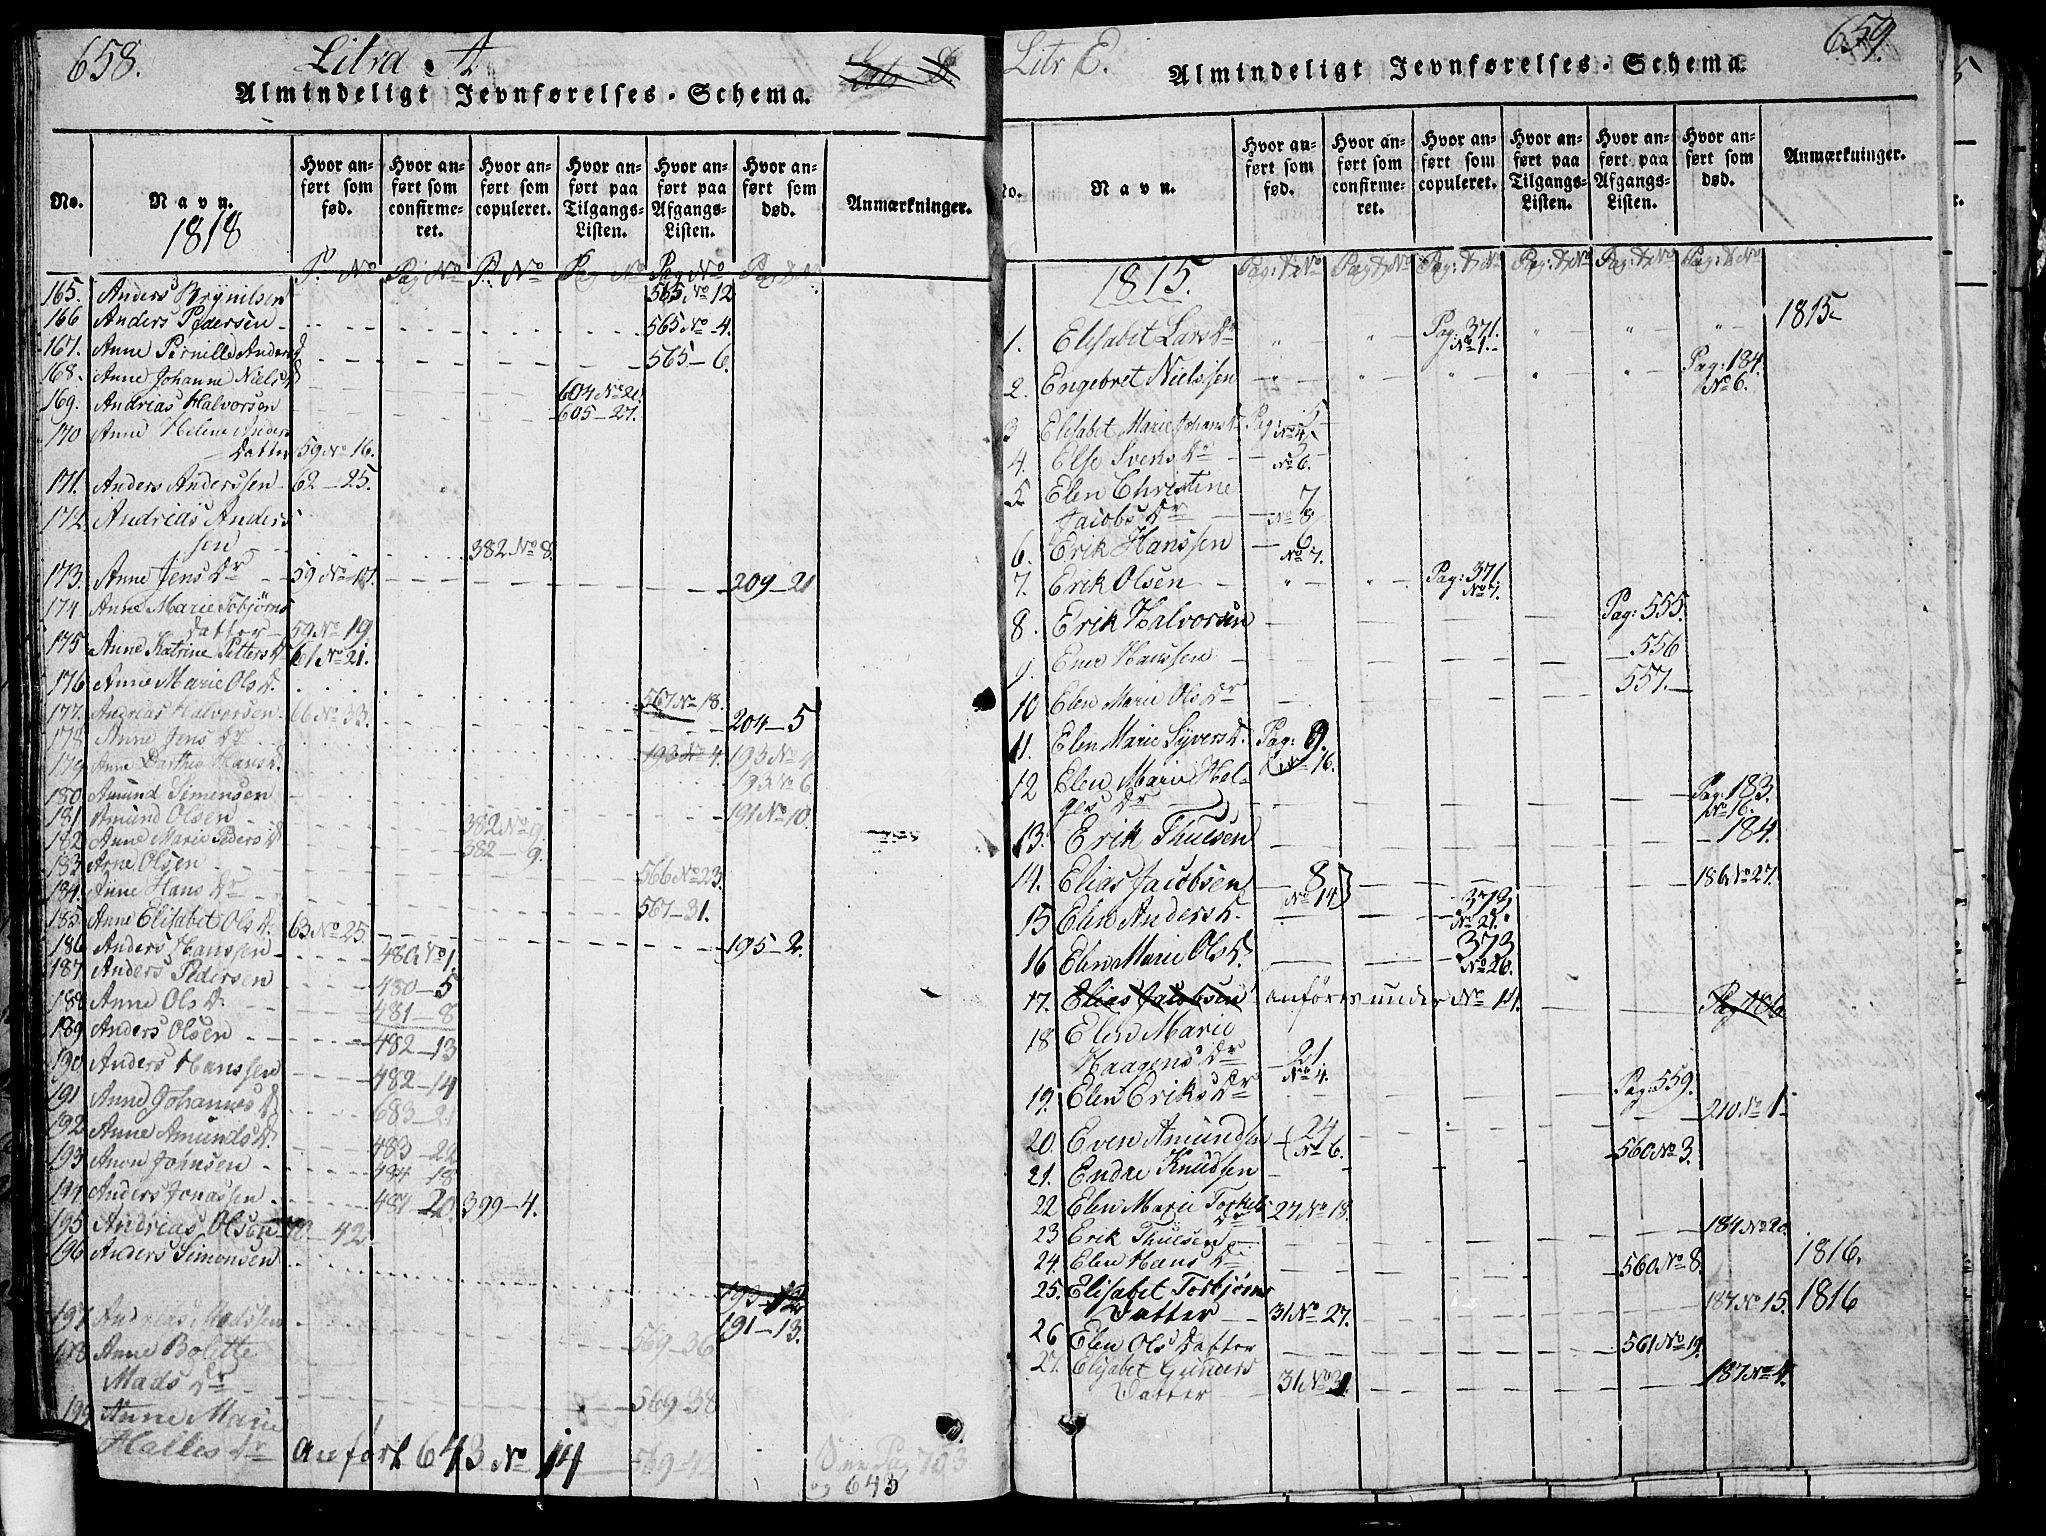 658.
Litra A
Almindeligt Jevnførelses-Schema.
No.
Navn.
1818
Hvor anført som fød.
Hvor anført som confirmeret.
Hvor anført som copuleret.
Hvor anført paa Tilgangs-Listen.
Hvor anført paa Afgangs-Listen.
Hvor anført som død.
Anmærkninger.
P. No Pag No P. No Pag No Pag No
165. Anders Brynilsen 565 No 12
166 Anders Pedersen 565 No 4.
167. Anne Pernille Anders D 565 – 6.
168. Anne Johanne Niels D 604 No 20
169. Andrias Halvorsen 605 – 27.
170 Anne Helene Anders
Datter 59 No 16.
171. Anders Anderssen 62 – 25.
172. Andrias Anders
sen 382 No 8.
173. Anne Jens Dr 59 No 17. 209 – 21
174 Anne Marie Tobjørns
Datter 59 No 19
175 Anne Katrine Petters D 61 No 21.
176 Anne Marie Ols D. 567 No 18.
177. Andrias Halvorsen 66 No 33. 204 – 5
178 Anne Jens Dr 193 No 4. 193 No 4
179 Anne Dorthea Hans D. 193 No 6.
180 Amund Simensen 191 No 10.
181 Amund Olsen 382 No 9.
182 Anne Marie Peders D 382 – 9.
183 Arne Olsen 566 No 23.
184 Anne Hans Dr 567 – 31.
185 Anne Elisabet Ols D. 63 No 25. 195 – 2.
186 Anders Hanssen 480 No 1.
187 Anders Pedersen 480 – 5
188 Anne Ols D. 481 – 8
189 Anders Olsen 482 – 13
190 Anders Hanssen 482 – 14
191 Anne Johannes D 683 – 21
192 Anne Amunds D. 483 – 22
193 Anon Johnsen 484 – 18
194 Anders Jonassen 484 20. 399 – 4.
195 Andrias Olsen 42
196 Anders Simonsen
191 – 13.
197 Andreas Madssen 569 – 36
198 Anne Bolette
Mads Dr 569 – 38
199 Anne Marie
Halles Dr anført 643 No 14 569 – 42
og 643
Litr E.
659.
Almindeligt Jevnførelses-Schema.
No.
Navn.
Hvor anført som fød.
Hvor anført som confirmeret.
Hvor anført som copuleret.
Hvor anført paa Tilgangs-Listen.
Hvor anført paa Afgangs-Listen.
Hvor anført som død.
Anmærkninger.
1815. Pag: & No Pag & No Pag: & No Pag: & No Pag: & No Pag: & No
1815
1. Elisabet Lars Dr Pag: 371. No 1.
2. Engebret Nielssen Pag: 184. No 6.
3 Elisabet Marie Johans Dr Pag: 5 No 4.
4. Else Svens Dr No 6.
5 Elen Christine
Jacobs Dr 7 No 8
6. Erik Hanssen 6 No 7.
7. Erik Olsen Pag: 371 No 7.
8. Erik Halvorsen Pag: 555.
9. Ener Hanssen 556
10 Elen Marie Ols Dr 557.
11. Elen Marie Syvers D. Pag: 9. No 16.
12 Elen Marie Hel-
ges Dr Pag: 183. No 16.
13. Erik Thuesen 184.
14. Elias Jacobsen 8 No 14 186 No 27.
15 Elen Anders D. 373 No 21.
16 Elen Marie Ols D. 373 No 26.
17. Elias Jacobsen anføres under No 14.
18 Elen Marie
Haagens Dr 21. No 4.
19. Elen Eriks Dr Pag: 559. 210 No 1
20. Even Amundsen 24 No 6.
21. Endre Knudsen 560 No 3.
22 Elen Marie Torkels
Dr 27 No 18.
23 Erik Thuesen 184 No 20
24. Elen Hans D. 560 No 8. 1816.
25. Elisabet Torbjørns
Datter 31 No 27. 187 No 15. 1816
26 Elen Ols Datter 561 No 19.
27. Elisabet Gunders
Datter 31 No 31. 187 No 4.